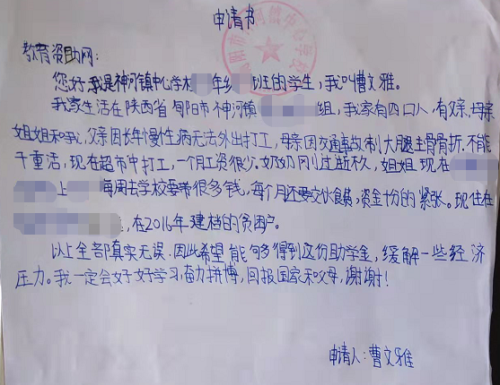 申请书
教育资助网：
您好，我是神河镇中心学校年级班的学生，我叫曹文雅。
我家生活在陕西省旬阳市神河镇组，我家有四口人，有父亲、母亲
姐姐和我，父亲因长年慢性病无法外出打工，母亲因交通事故大腿主骨骨折，不能
干重活，现在超市中打工，一个月工资很少。奶奶刚过逝不久，姐姐现在
上每周去学校要带很多钱，每个月还要交伙食费，资金十份的紧张。现住在
，在2016年建档的贫困户。
以上全部真实无误，因此希望能够得到这份助学金，缓解一些经济
压力。我一定会好好学习，奋力拼博，回报国家和父母，谢谢！
申请人：曹文雅